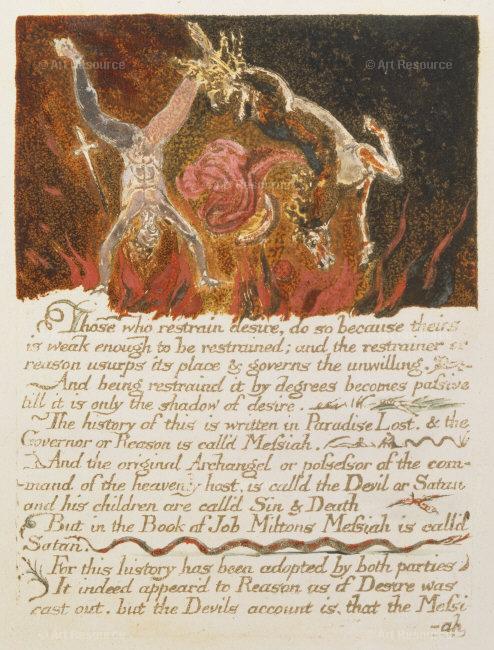 © Art Resource © Art Resource
© Art Resource © Art Resource
Those who restrain desire, do so because theirs
is weak enough to be restrained; and the restrainer or
reason usurps its place & governs the unwilling.
And being restraind it by degrees becomes passive
till it is only the shadow of desire.
The history of this is written in Paradise Lost. & the
Governor or Reason is call'd Messiah.
And the original Archangel or possessor of the com-
-mand of the heavenly host, is calld the Devil or Satan
and his children are call'd Sin & Death
But in the Book of Job Miltons Messiah is call'd
Satan.
For this history has been adopted by both parties
It indeed appear'd to Reason as if Desire was
cast out. but the Devils account is, that the Messi-
-ah
© Art Resource © Art Resource